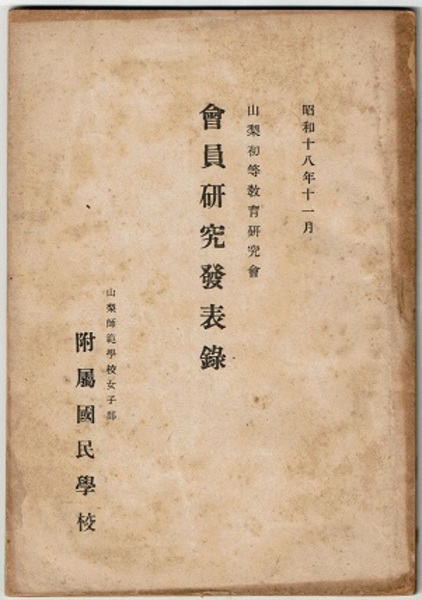 昭和十八年十一月
山梨初等敎育硏究會
會員硏究發表錄
山梨師範學校女子部
附屬國民學校